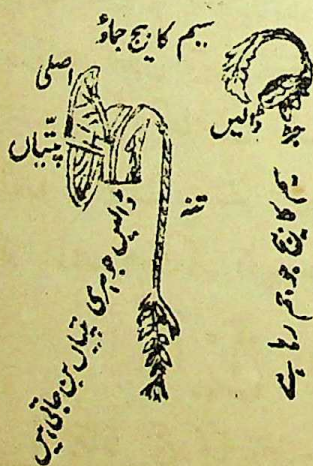 سیم کا بیج جماؤ
اصلی
پتّیاں
دالیں
جڑ
تنہ
دالیں جو ہری پتیاں بن جاتی ہیں
سیم کا بیج جو جم رہا ہے